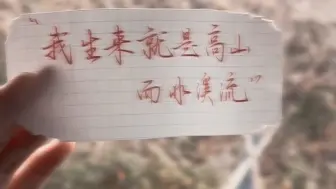 “我生来就是高山
而非溪流”